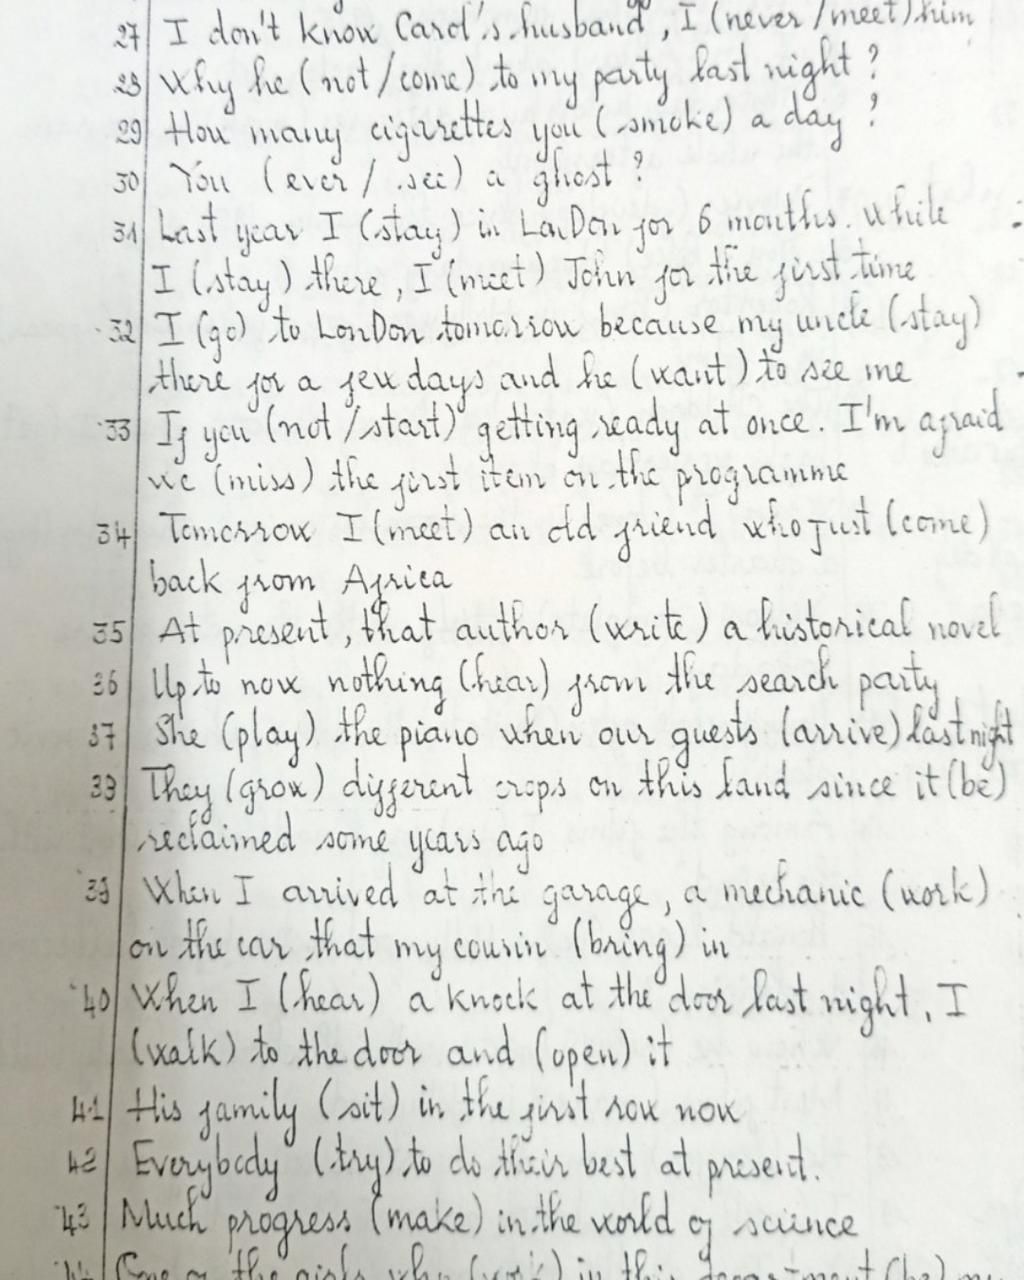 27 I don't know Carol's husband, I (never/meet) him
28 Why he (not/come) to my party last night ?
29 How many cigarettes you (smoke) a day ?
30 You (ever/see) a ghost ?
31 Last year I (stay) in LonDon for 6 months. While
I (stay) there, I (meet) John for the first time
32 I (go) to LonDon tomorrow because my uncle (stay)
there for a few days and he (want) to see me
33 If you (not/start) getting ready at once. I'm afraid
we (miss) the first item on the programme
34 Tomorrow I (meet) an old friend who just (come)
back from Africa
35 At present, that author (write) a historical novel
36 Up to now nothing (hear) from the search party
37 She (play) the piano when our guests (arrive) last night
38 They (grow) different crops on this land since it (be)
reclaimed some years ago
39 When I arrived at the garage, a mechanic (work)
on the car that my cousin (bring) in
40 When I (hear) a knock at the door last night, I
(walk) to the door and (open) it
41 His family (sit) in the first row now
42 Everybody (try) to do their best at present.
43 Much progress (make) in the world of science
the girls who (work) in this department (be)